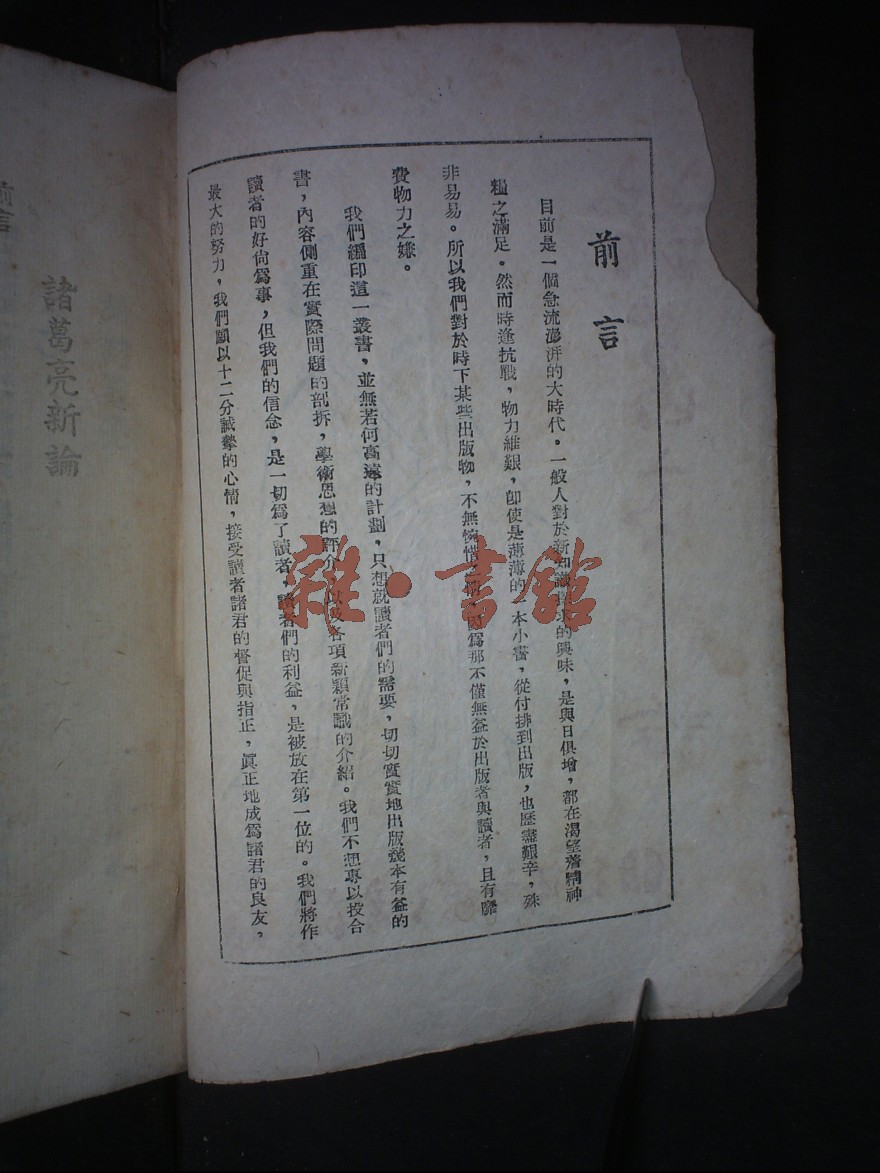 前言
目前是一個急流澎湃的大時代。一般人對於新知識尋求的興味，是與日俱增，都在渴望着精神
糧之滿足。然而時逢抗戰，物力維艱，即使是薄薄的一本小書，從付排到出版，也歷盡艱辛，殊
非易易。所以我們對於時下某些出版物，不無惋惜之，因爲那不僅無益於出版者與讀者，且有糜
費物力之嫌。
我們編印這一叢書，並無若何高遠的計劃，只想就讀者們的需要，切切實實地出版幾本有益的
書，內容側重在實際問題的剖拆，學術思想的評介，以及各項新穎常識的介紹。我們不想專以投合
讀者的好尙爲事，但我們的信念，是一切爲了讀者，讀者們的利益，是被放在第一位的。我們將作
最大的努力，我們願以十二分誠摯的心情，接受讀者諸君的督促與指正，眞正地成爲諸君的良友，
前言
諸葛亮新論
雜·書館